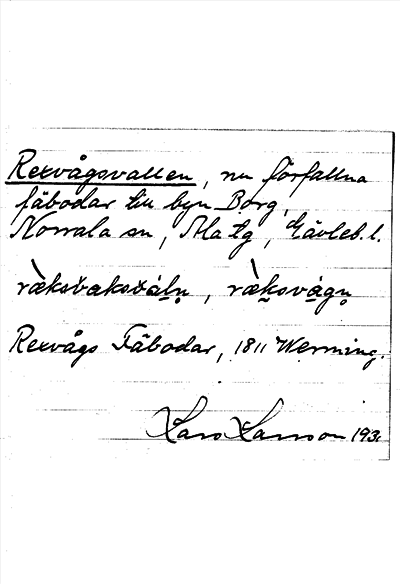 Rexvågsvallen, nu förfallna
fäbodar till byn Borg,
Norrala sn, Ala tg, Gävleb. l.
Rexvågs Fäbodar, 1811 Werming.
Lars Larsson 193